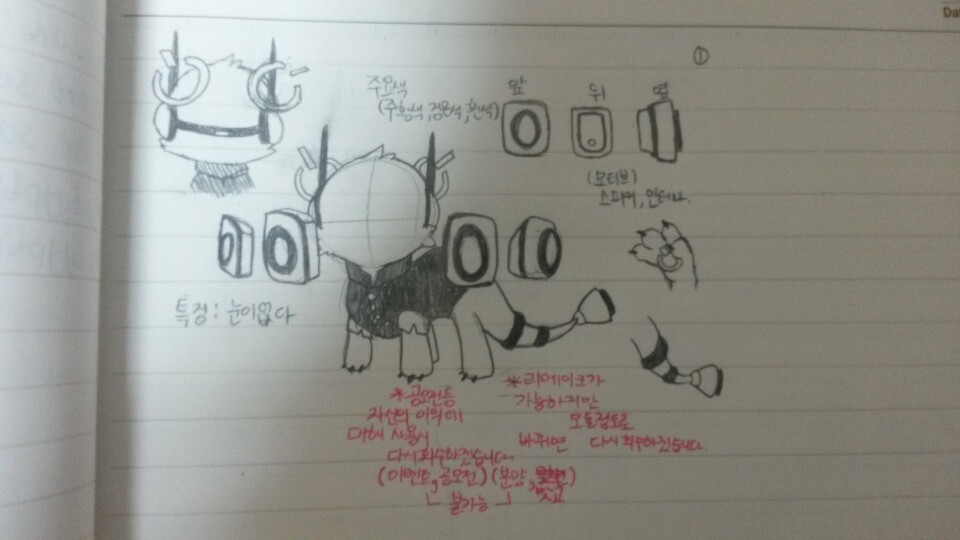 Dat
①
주요색
(주황색, 검은색, 흰색)
앞
뒤
옆
(모티브)
스피커, 안테나.
특징 : 눈이없다
*공모전등
자신의 이외에
대해 사용시
다시회수하겠습니다.
(이벤트, 공모전) (분양,
불가능
*리메이크가
가능하지만
모를정도로
바뀌면 다시회수하겠습니다.